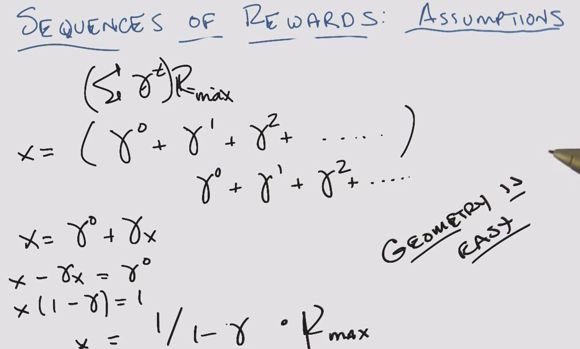 SEQUENCES OF REWARDS: ASSUMPTIONS
(Σ γ^t) Rmax
x = (γ^0 + γ^1 + γ^2 + ......)
γ^0 + γ^1 + γ^2 + .....
x = γ^0 + γx
x - γx = γ^0
x(1 - γ) = 1
x = 1/1-γ · RMAX
GEOMETRY IS
EASY